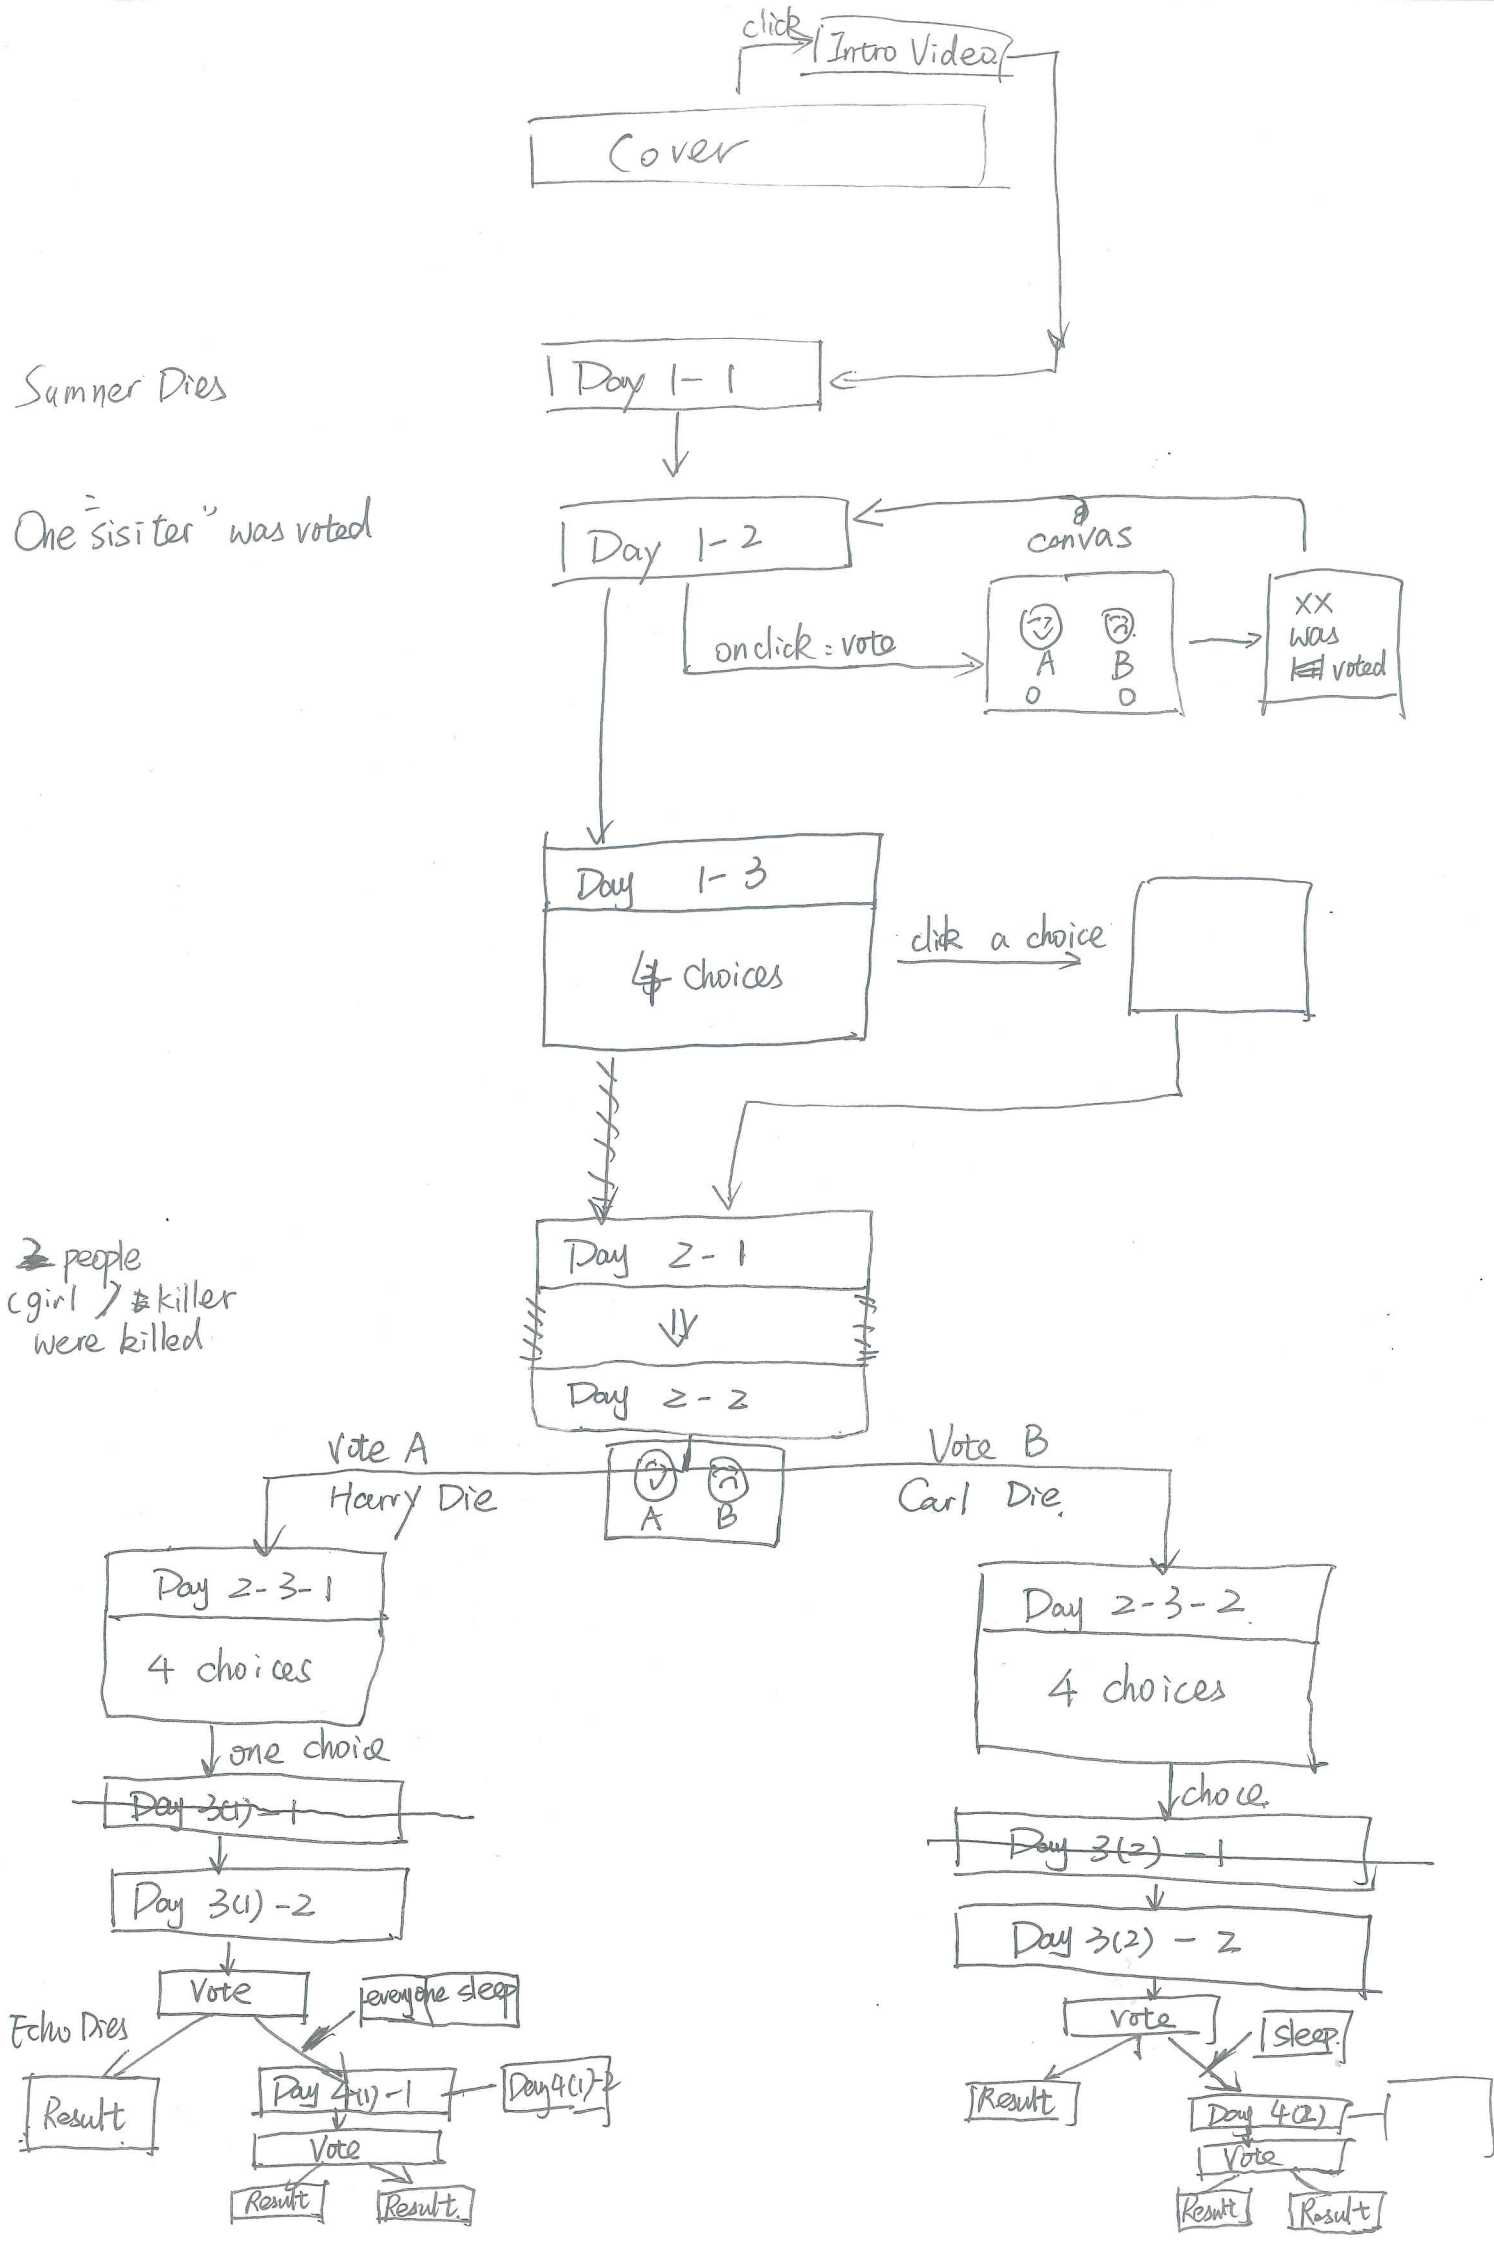 click
Intro Video
Cover
Sumner Dies
Day 1-1
One "sisiter" was voted
Day 1-2
canvas
onclick: vote
A B
O O
xx
was
voted
Day 1-3
4 choices
click a choice
people
(girl) killer
were killed
Day 2-1
Day 2-2
Vote A
Harry Die
A B
Vote B
Carl Die.
Day 2-3-1
4 choices
one choice
Day 3(1)-1
Day 3(1)-2
Vote
everyone sleep
Echo Dies
Result
Day 4(1)-1
Day4(1)-2
Vote
Result
Result.
Day 2-3-2
4 choices
choce.
Day 3(2)-1
Day 3(2)-2
vote
sleep.
Result
Day 4(2)
Vote
Result
Result